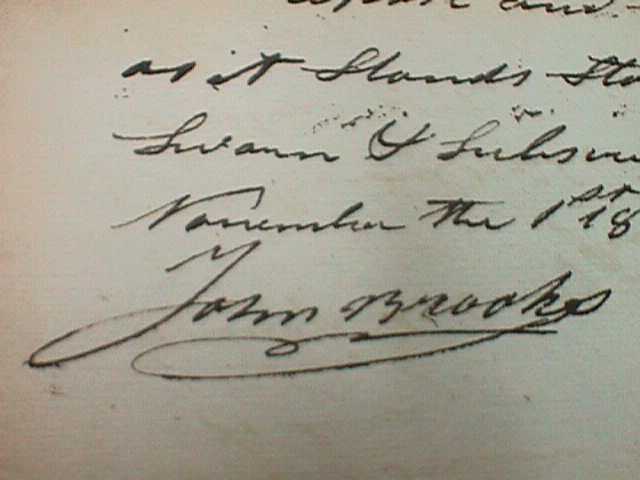 and
as it Stands
Swarn &
November the 1st 18
John Brooks